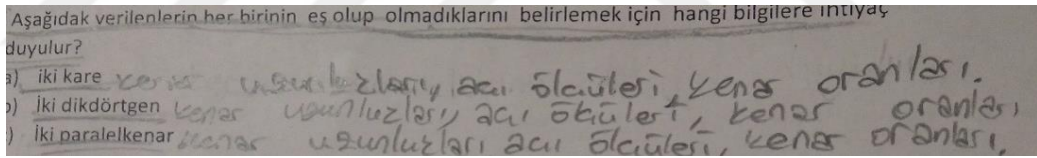 Aşağıdak verilenlerin her birinin eş olup olmadıklarını belirlemek için hangi bilgilere ihtiyaç
duyulur?
a) iki kare kenar uzunluzları, acı ölcüleri, kenar oranları.
b) İki dikdörtgen kenar uzunluzları, acı ölcüleri, kenar oranları
c) İki paralelkenar kenar uzunluzları acı ölcüleri, kenar oranları.